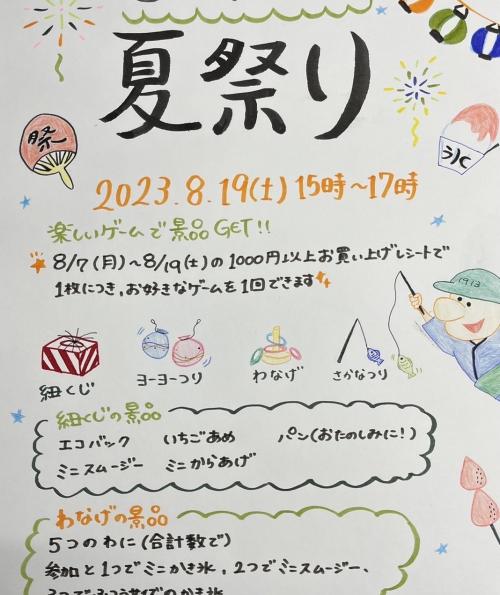 夏祭り
祭
氷
2023.8.19(土) 15時〜17時
楽しいゲームで景品GET!!
8/7(月)〜8/19(土)の1000円以上お買い上げレシートで
1枚につき、お好きなゲームを1回できます
1913
紐くじ
ヨーヨーつり
わなげ
さかなつり
紐くじの景品
エコバック いちごあめ パン(おたのしみに!)
ミニスムージー ミニからあげ
わなげの景品
5つのわに(合計数で)
参加と1つでミニかき氷、2つでミニスムージー、